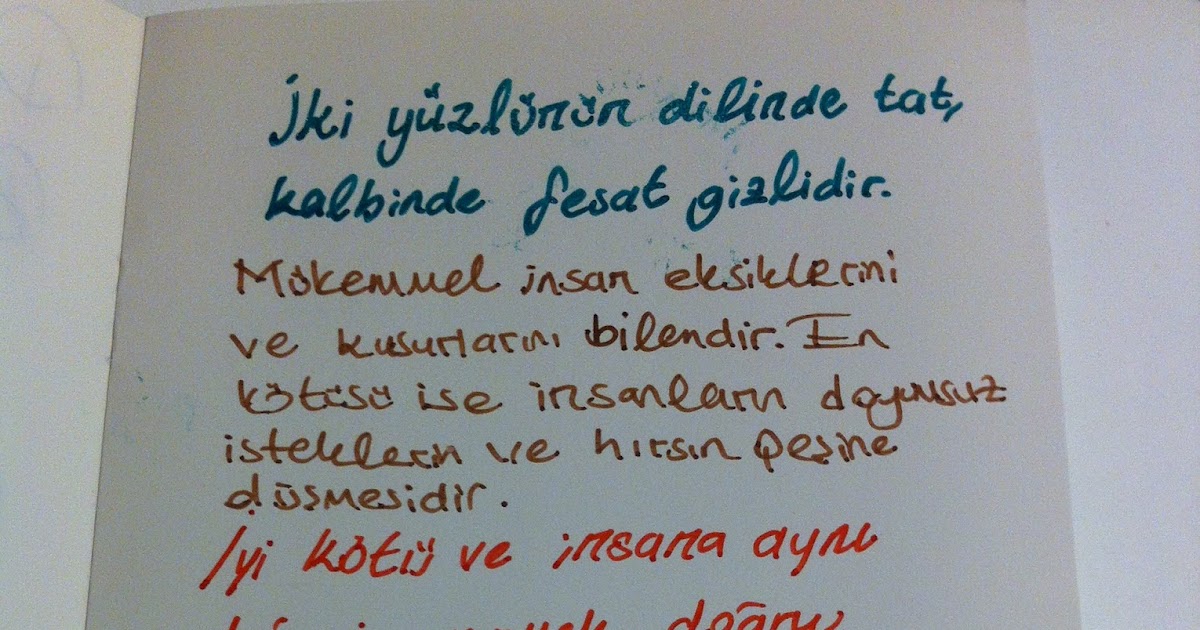 İki yüzlünün dilinde tat,
kalbinde fesat gizlidir.
Mükemmel insan eksiklerini
ve kusurlarını bilendir. En
kötüsü ise insanların doyumsuz
isteklerin ve hırsın peşine
düşmesidir.
İyi kötü ve insana aynı
doğru